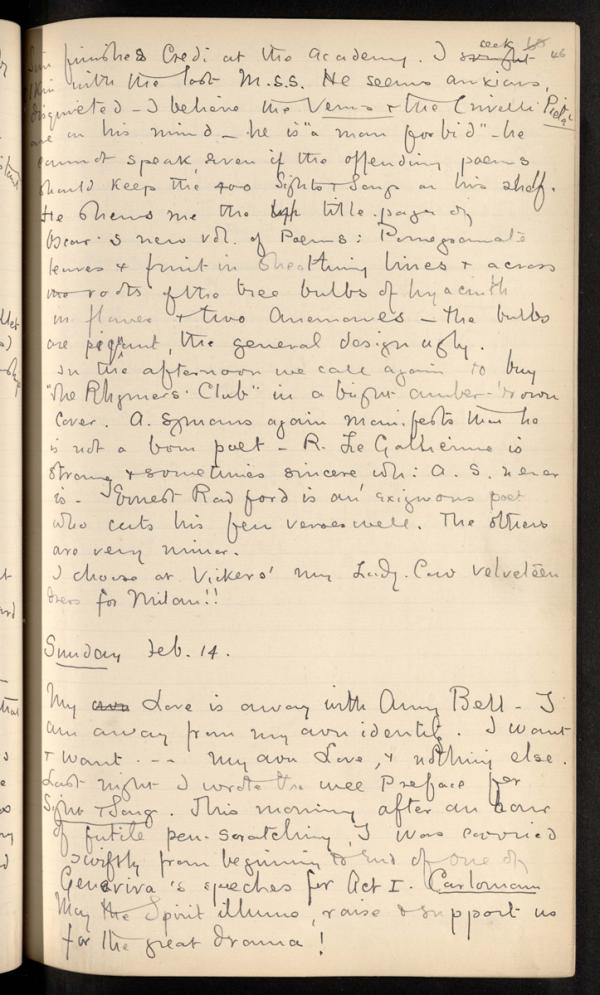 Sim finishes Credi at the Academy. I seek 46
Elkin with the last M.S.S. He seems anxious,
disquieted - I believe the Venus & the Crivelli Pietà
are on his mind - he is "a man forbid" - he
cannot speak even if the offending poems
should keep the 400 Sight & Songs on his shelf.
He shews me the title-page of
Oscar's new vol. of Poems: Pomegranate
leaves & fruit in sheathing lines & across
the roots of the tree bulbs of hyacinth
in flower & two Anemones - the bulbs
are piquant, the general design ugly.
In the afternoon we call again to buy
"The Rhymers' Club" in a bright amber-brown
Cover. A. Symons again manifests that he
is not a born poet - R. Le Gallienne is
strong & sometimes sincere wh: A. S. never
is - Ernest Radford is an exiguous poet
who cuts his few verses well. The others
are very minor.
I choose at Vickers' my Lady-Cow velveteen
dress for Milan!!
Sunday Feb. 14.
My own Love is away with Amy Bell - I
am away from my own identity. I want
& want . - - my own Love, & nothing else.
Last night I wrote the wee Preface for
Sight & Song. This morning after an hour
of futile pen-scratching, I was carried
swiftly from beginning to end of one of
Geneviva's speeches for Act I. Carloman
May the Spirit illume, raise & support us
for the great drama!